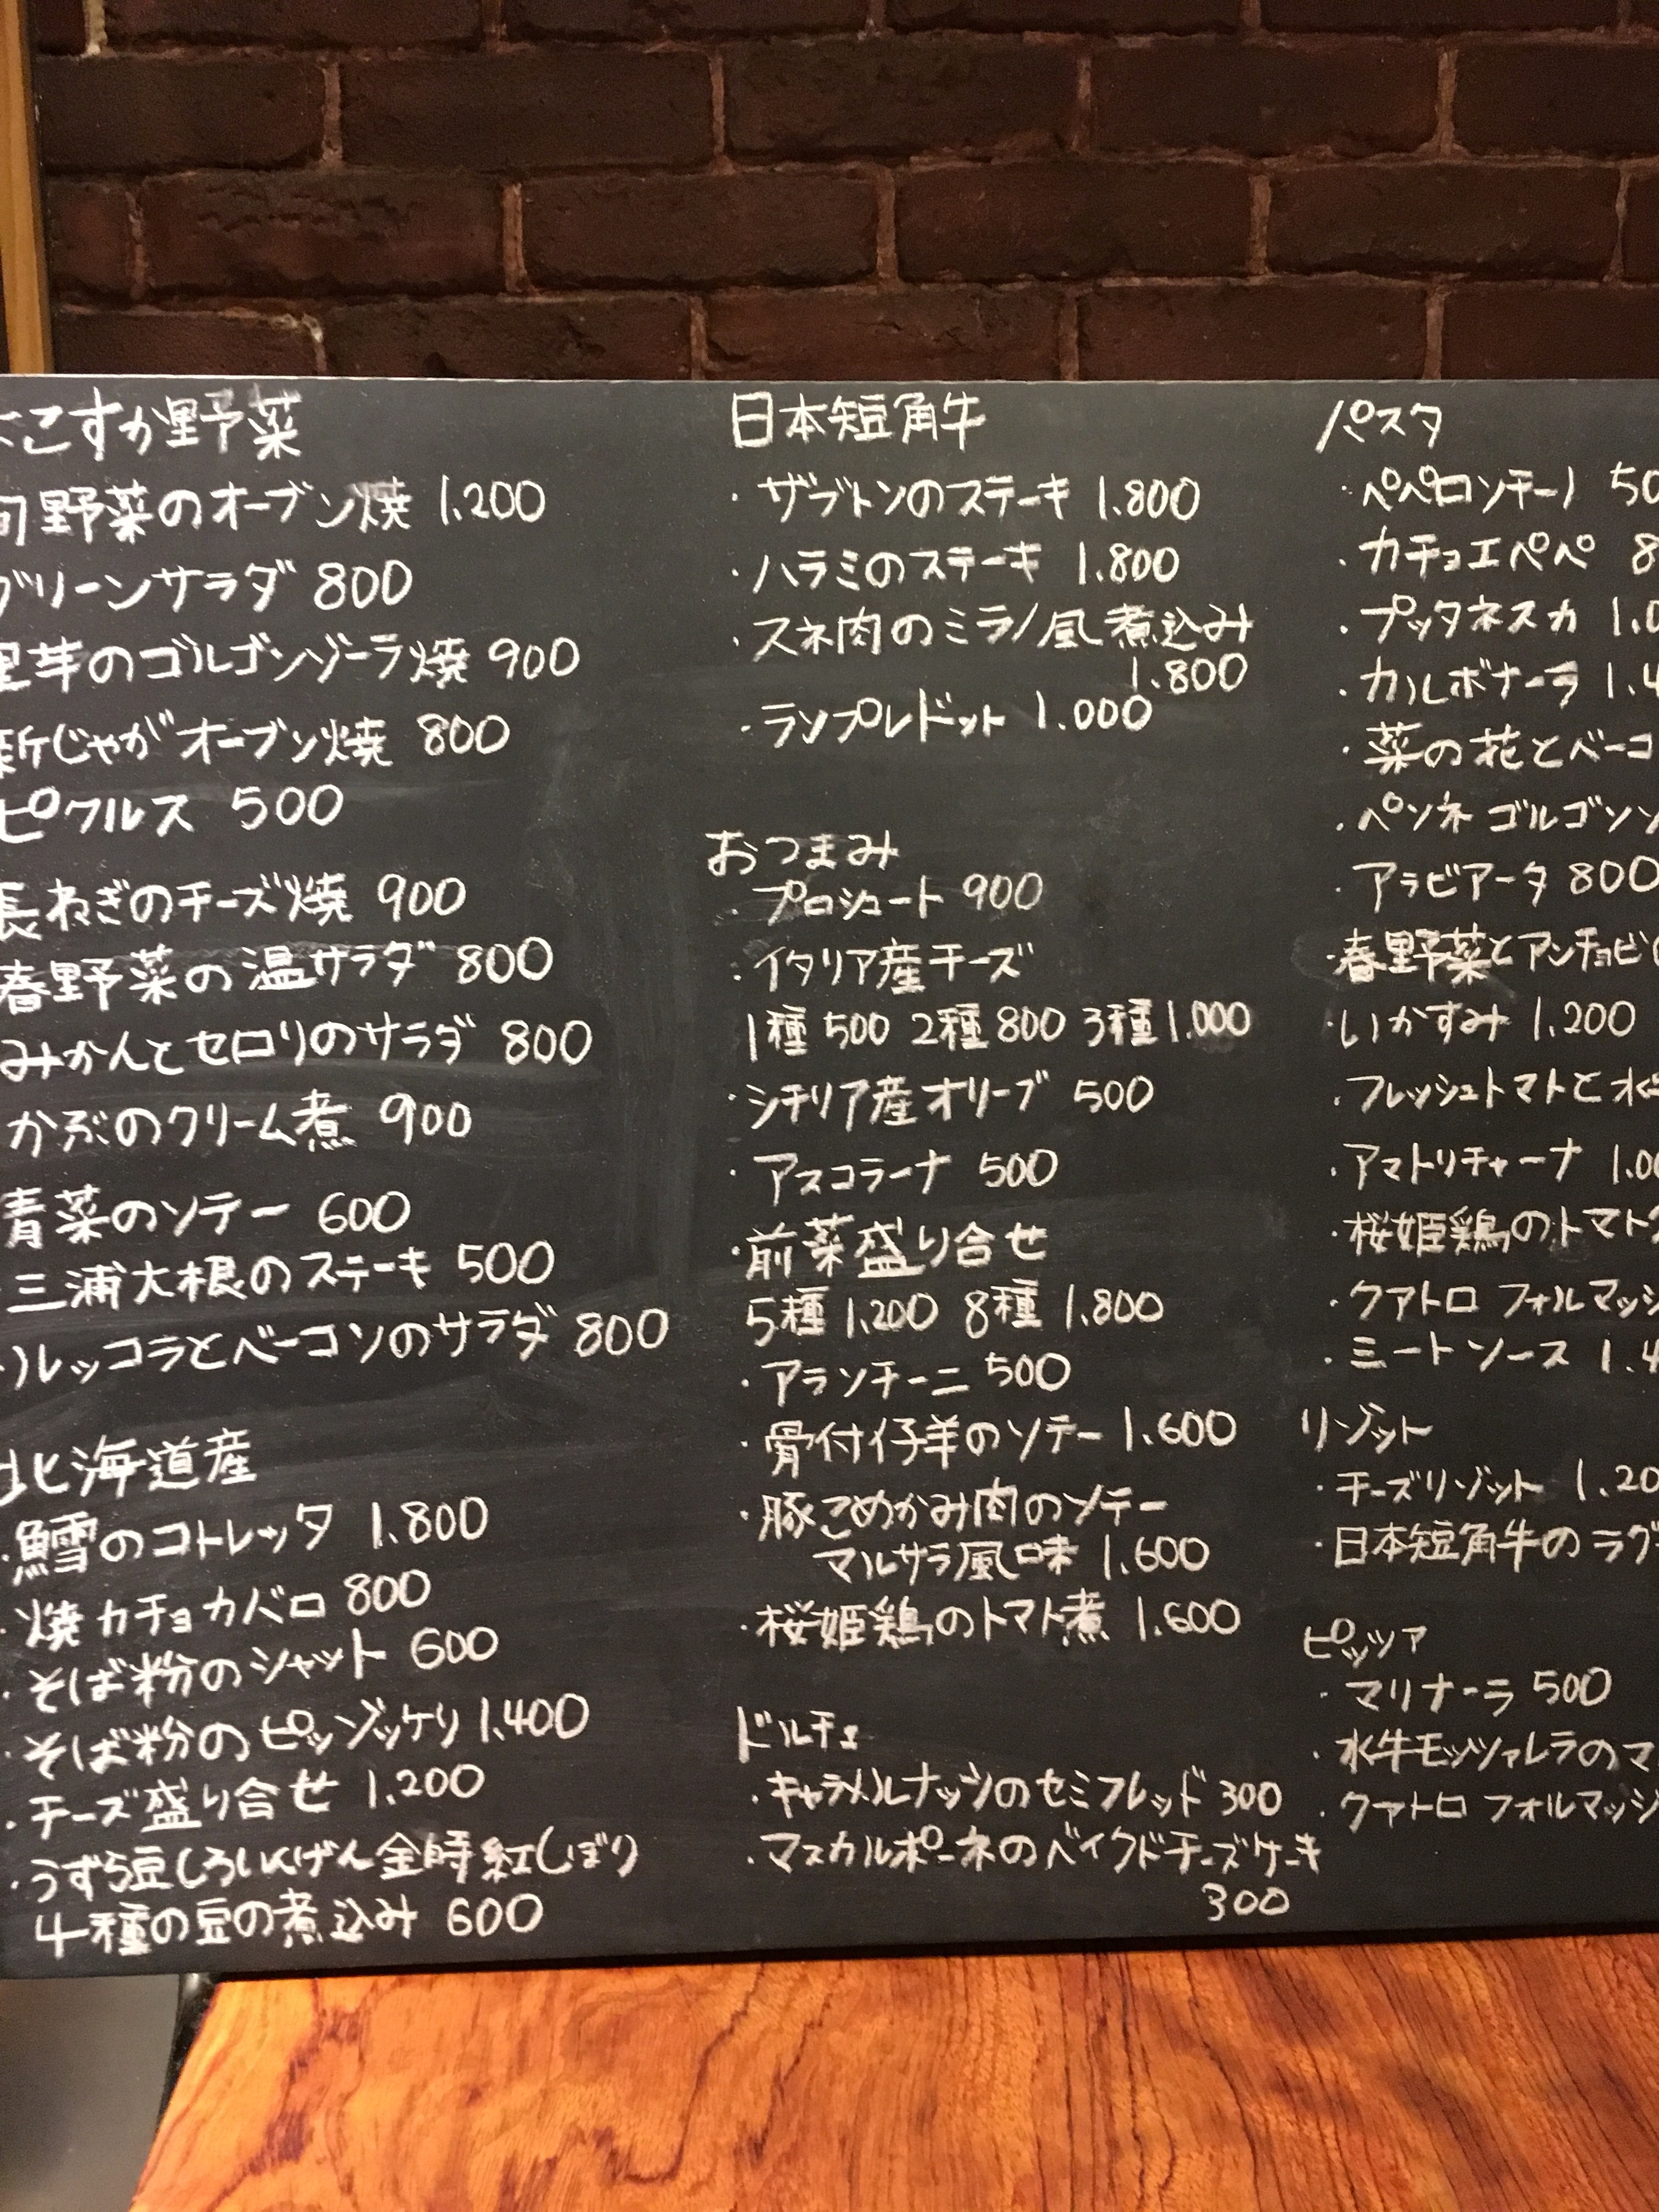 こすか野菜
旬野菜のオーブン焼 1.200
グリーンサラダ 800
里芋のゴルゴンゾーラ焼 900
新じゃがオーブン焼 800
ピクルス 500
長ねぎのチーズ焼 900
春野菜の温サラダ 800
みかんとセロリのサラダ 800
かぶのクリーム煮 900
青菜のソテー 600
三浦大根のステーキ 500
・ルッコラとベーコンのサラダ 800
北海道産
・鱈のコトレッタ 1.800
・焼カチョカバロ 800
・そば粉のシャット 600
・そば粉のピッゾッケリ 1.400
・チーズ盛り合せ 1.200
・うずら豆しろいんげん金時紅しぼり
4種の豆の煮込み 600
日本短角牛
・ザブトンのステーキ 1.800
・ハラミのステーキ 1.800
・スネ肉のミラノ風煮込み
1.800
・ランプレドット 1.000
おつまみ
・プロシュート 900
・イタリア産チーズ
1種 500 2種 800 3種 1.000
・シチリア産オリーブ 500
・アスコラーナ 500
・前菜盛り合せ
5種 1.200 8種 1.800
・アランチーニ 500
・骨付仔羊のソテー 1.600
・豚こめかみ肉のソテー
マルサラ風味 1.600
・桜姫鶏のトマト煮 1.600
ドルチェ
・キャラメルナッツのセミフレッド 300
・マスカルポーネのベイクドチーズケーキ
300
パスタ
・ペペロンチーノ 50
・カチョエペペ 8
・プッタネスカ 1.0
・カルボナーラ 1.4
・菜の花とベーコ
・ペンネ ゴルゴンゾ
・アラビアータ 800
・春野菜とアンチョビ
・いかすみ 1.200
・フレッシュトマトと水
・アマトリチャーナ 1.00
・桜姫鶏のトマト
・クアトロ フォルマッジ
・ミートソース 1.4
リゾット
・チーズリゾット 1.20
・日本短角牛のラグ
ピッツァ
・マリナーラ 500
・水牛モッツァレラのマ
・クアトロ フォルマッジ